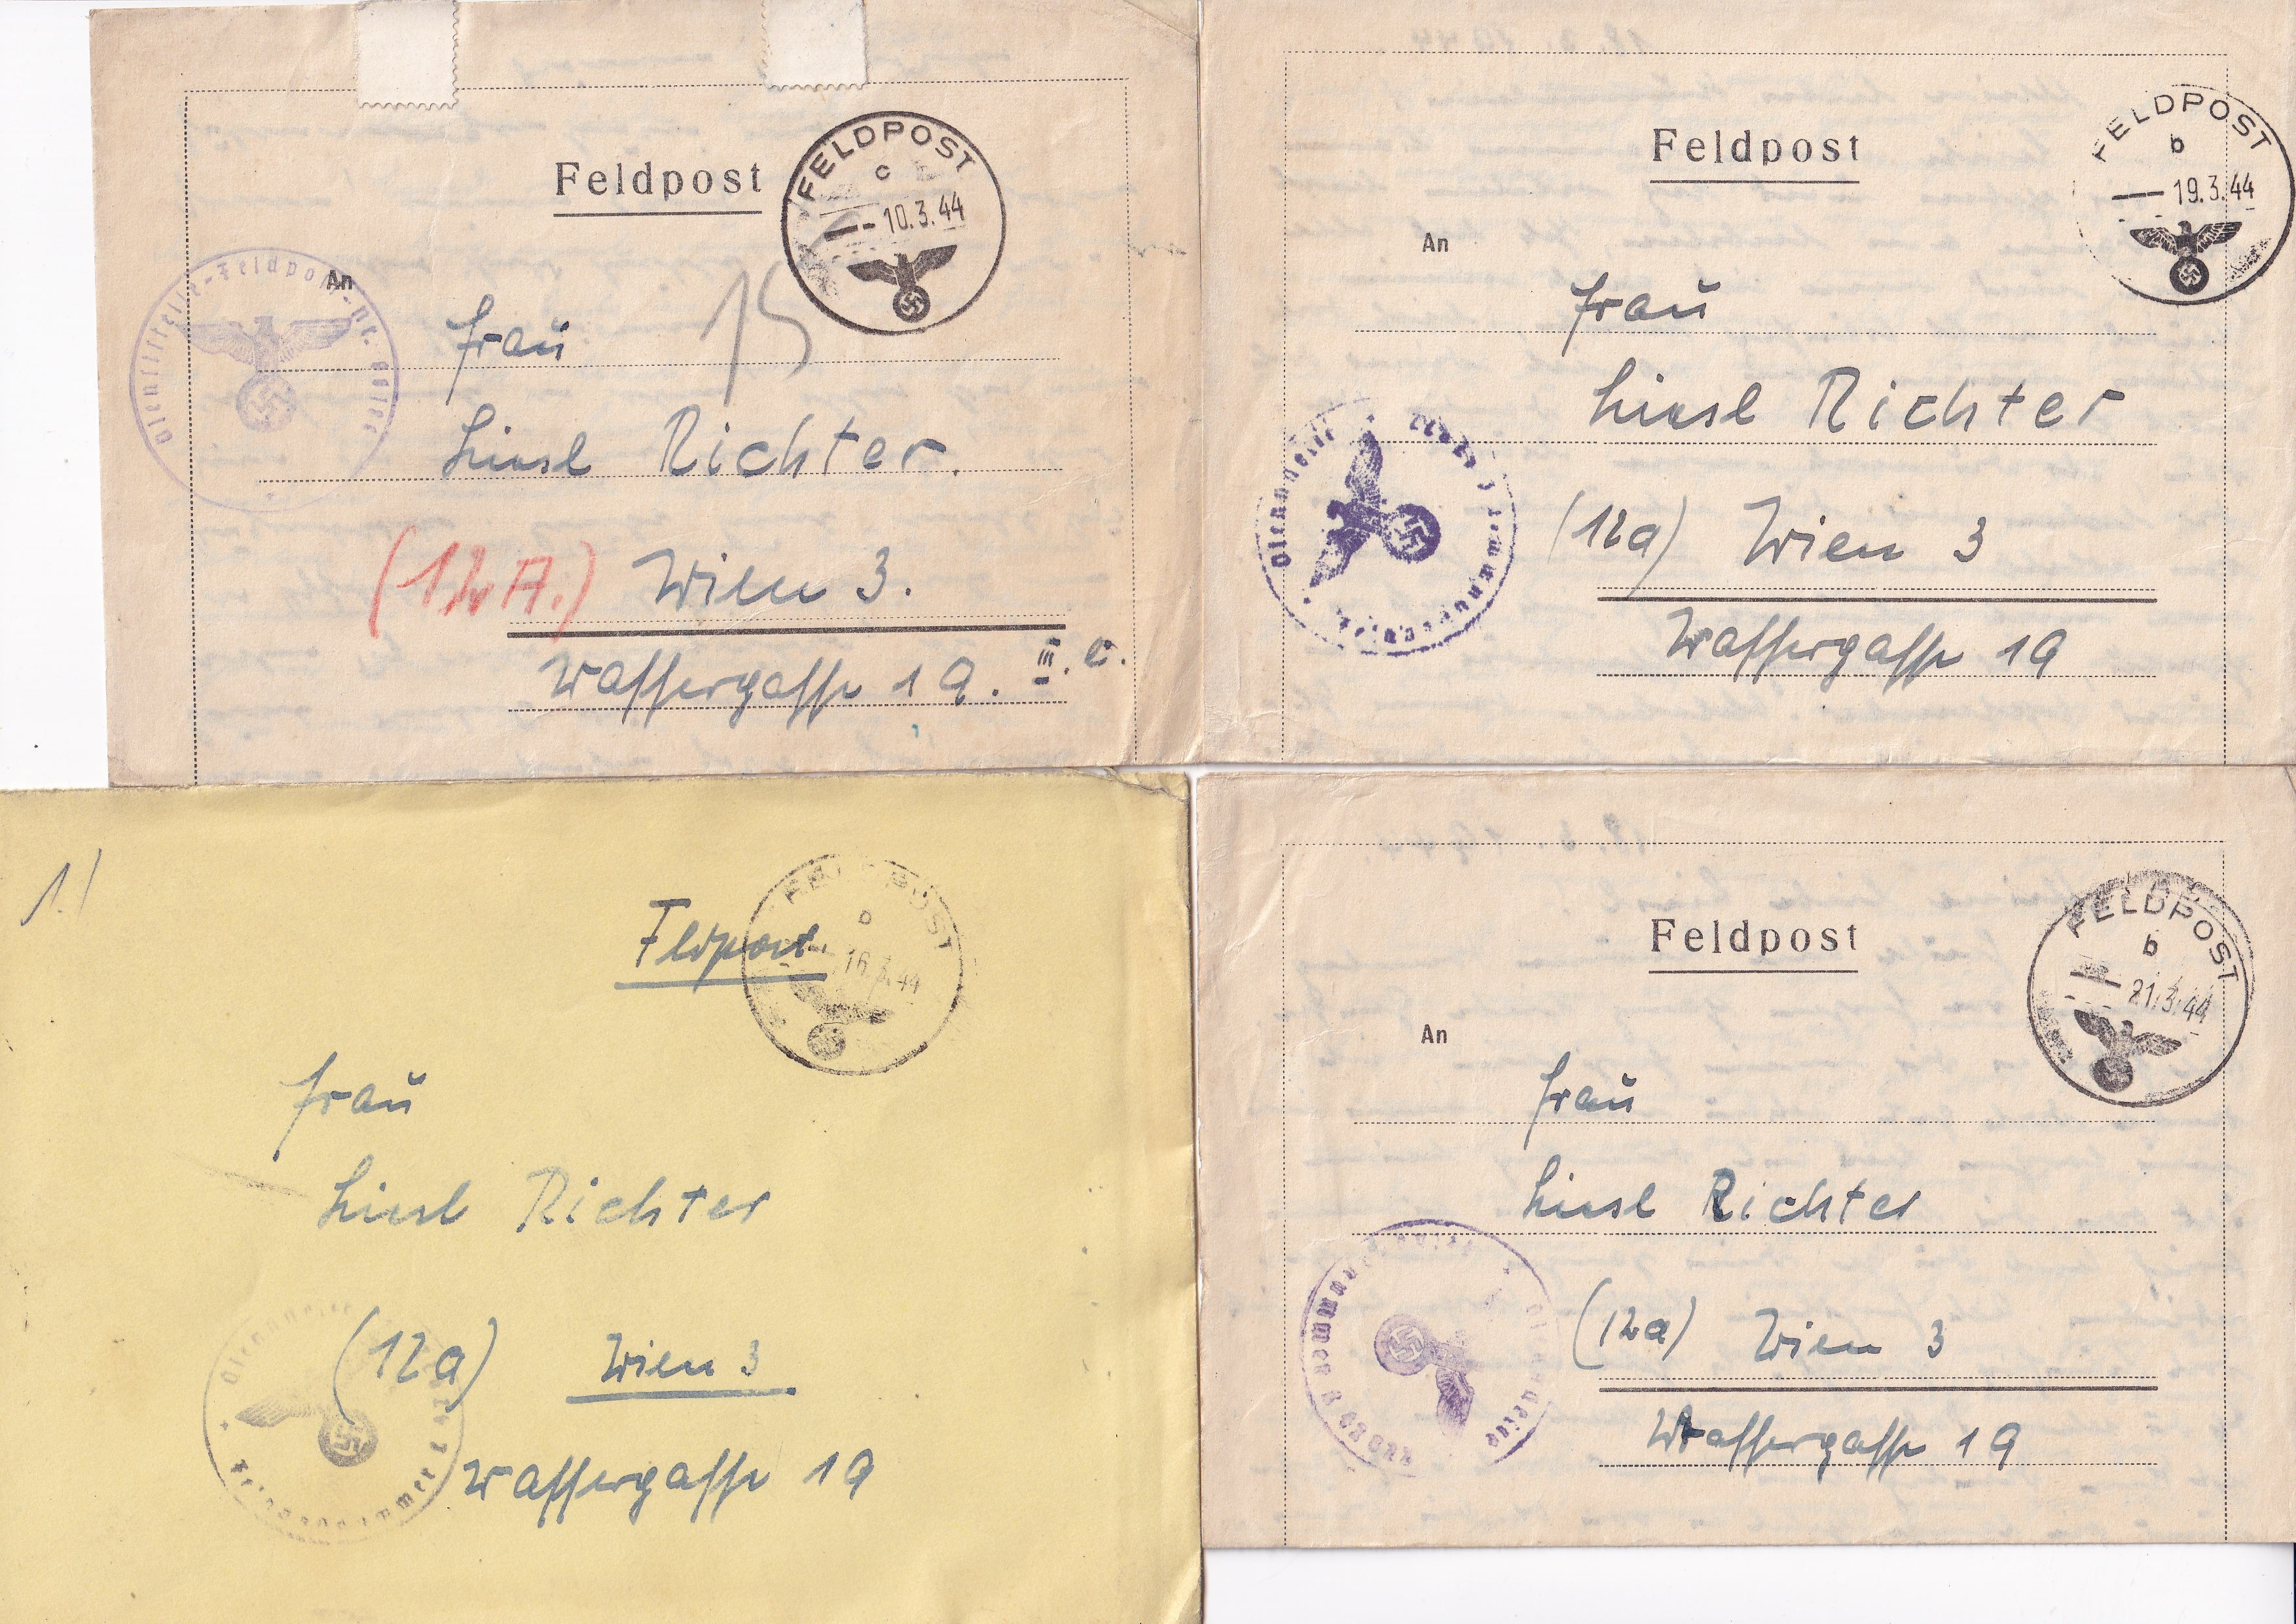 Feldpost
FELDPOST
c
10.3.44
An
15
Frau
Liesl Richter.
(12A.) Wien 3.
Wassergasse 19. III. e.
Feldpost
FELDPOST
b
19.3.44
An
Frau
Liesl Richter
(12a) Wien 3
Wassergasse 19
1.)
Feldpost
FELDPOST
b
16.3.44
Frau
Liesl Richter
(12a) Wien 3
Wassergasse 19
Feldpost
FELDPOST
b
21.3.44
An
Frau
Liesl Richter
(12a) Wien 3
Wassergasse 19